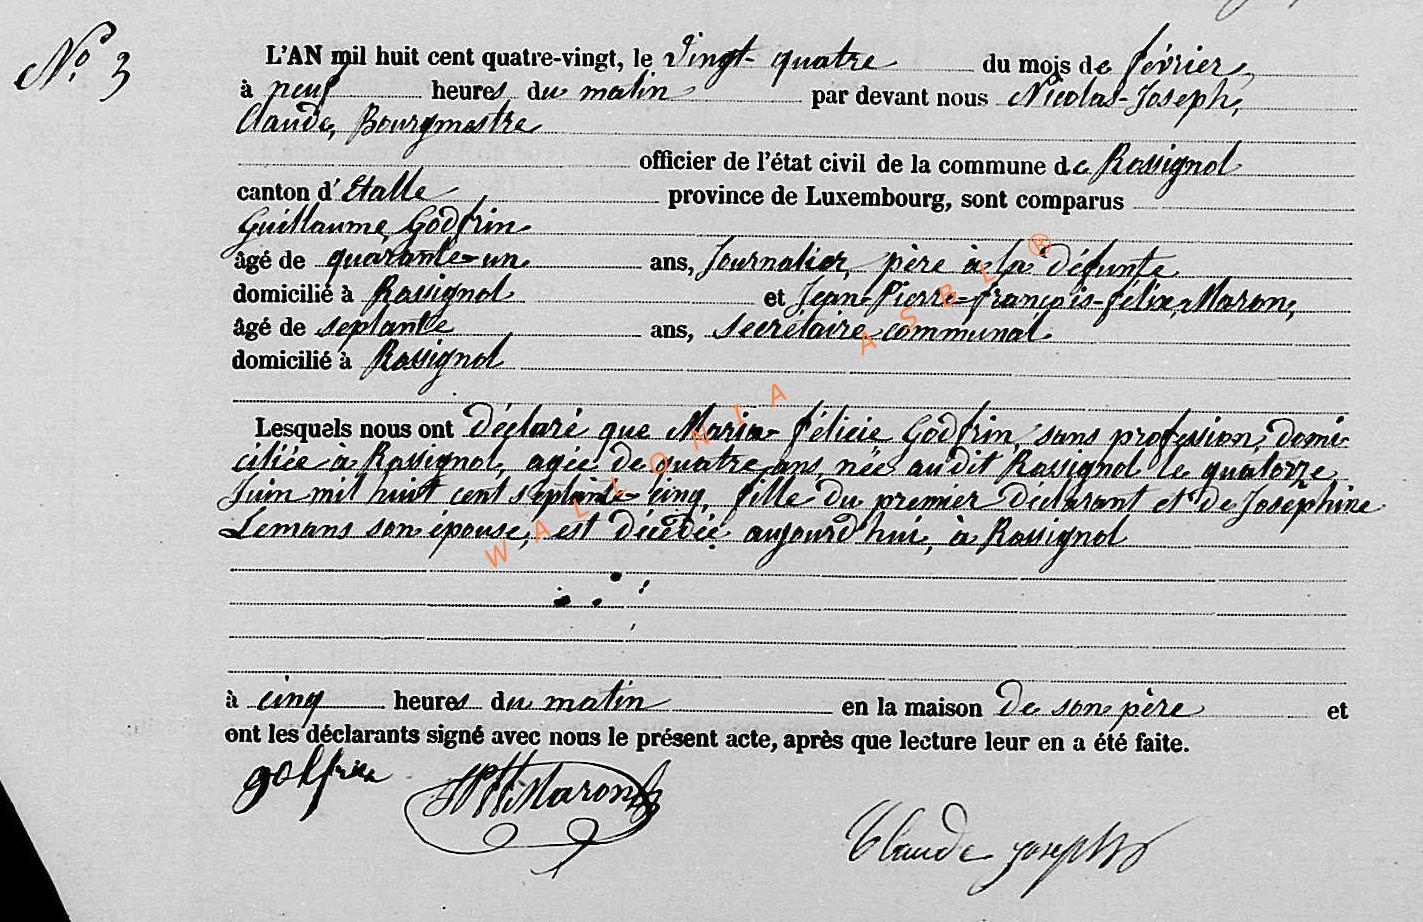 N° 3
L'AN mil huit cent quatre-vingt, le vingt-quatre du mois de février,
à neuf heures du matin par devant nous Nicolas-Joseph,
Claude, Bourgmestre
officier de l'état civil de la commune de Rossignol
canton d'Etalle province de Luxembourg, sont comparus
Guillaume Godfrin
âgé de quarante-un ans, Journalier, père à la défunte
domicilié à Rossignol et Jean-Pierre-françois-félix, Maron,
âgé de septante ans, secrétaire communal
domicilié à Rossignol
Lesquels nous ont déclaré que Marie félicie Godfrin, sans profession, domi
ciliée à Rossignol, agée de quatre ans, née audit Rossignol le quatorze
Juin mil huit cent septante-cinq, fille du premier déclarant et de Joséphine
Lemans son épouse, est décédée aujourd'hui, à Rossignol
à cinq heures du matin en la maison de son père et
ont les déclarants signé avec nous le présent acte, après que lecture leur en a été faite.
godfrin Maron
Claude Joseph
WALLONIA ASBL ®